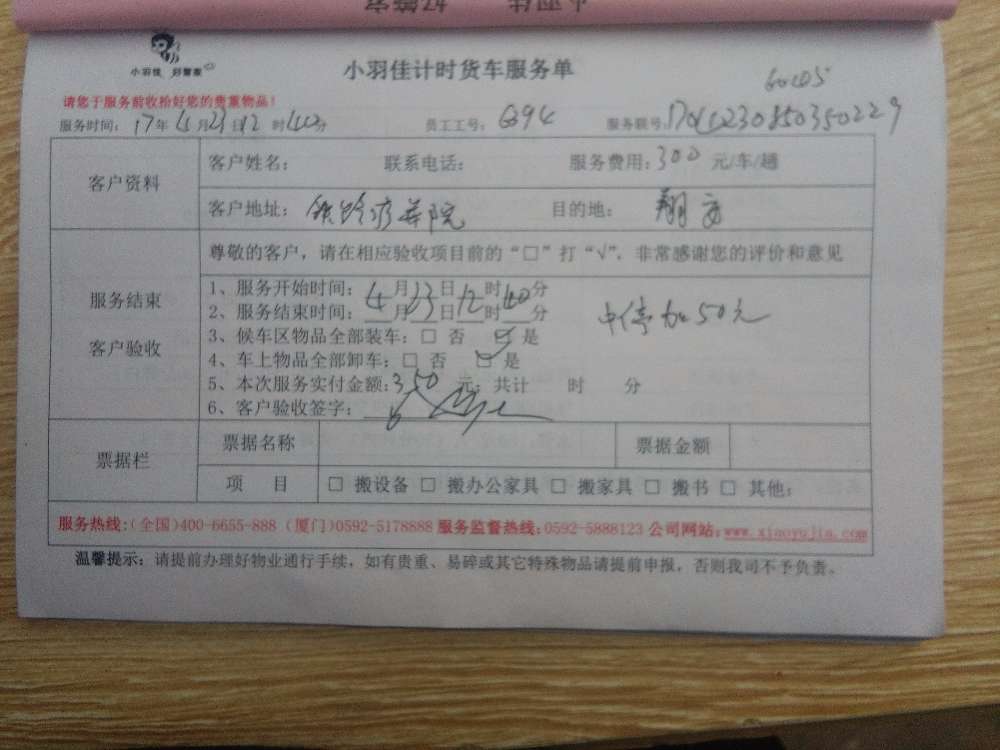 小羽佳 好管家
小羽佳计时货车服务单
请您于服务前收检好您的贵重物品!
服务时间: 17年4月23日12时40分 员工工号: 6394 服务联号:
客户资料
客户姓名: 联系电话: 服务费用: 300 元/车/趟
客户地址: 疗养院 目的地: 翔安
服务结束
客户验收
尊敬的客户，请在相应验收项目前的“□”打“√”，非常感谢您的评价和意见
1、服务开始时间: 4月23日12时40分
2、服务结束时间: 月 日 时 分
中停加50元
3、候车区物品全部装车: □ 否 ☑ 是
4、车上物品全部卸车: □ 否 ☑ 是
5、本次服务实付金额: 350 元; 共计 时 分
6、客户验收签字:
票据栏
票据名称 票据金额
项 目 □ 搬设备 □ 搬办公家具 □ 搬家具 □ 搬书 □ 其他:
服务热线:(全国)400-6655-888 (厦门)0592-5178888 服务监督热线:0592-5888123 公司网站: www.xiaoyujia.com
温馨提示: 请提前办理好物业通行手续，如有贵重、易碎或其它特殊物品请提前申报，否则我司不予负责。